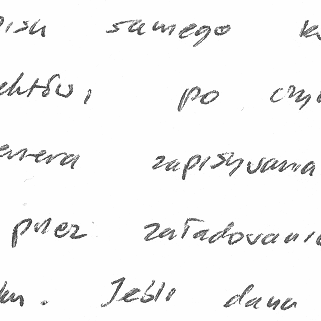 pish samego k
ektów, po czy
enera zapisywania
przez załadowani
ku. Jeśli dana